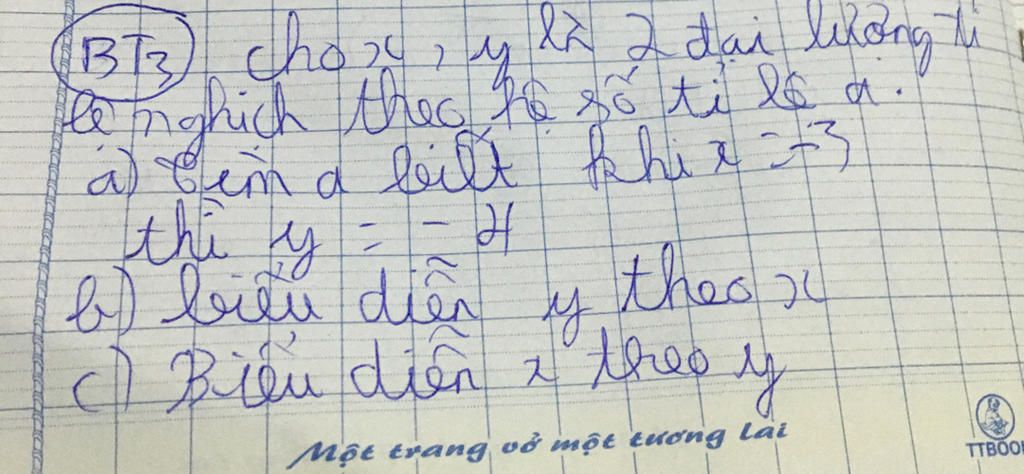 BT3 Cho x, y là 2 đại lượng tỉ
lệ nghịch theo hệ số tỉ lệ a.
a) Tìm a biết khi x = -3
thì y = - 4
b) biểu diễn y theo x
c) Biểu diễn x theo y
Một trang vở một tương lai
TTBOO